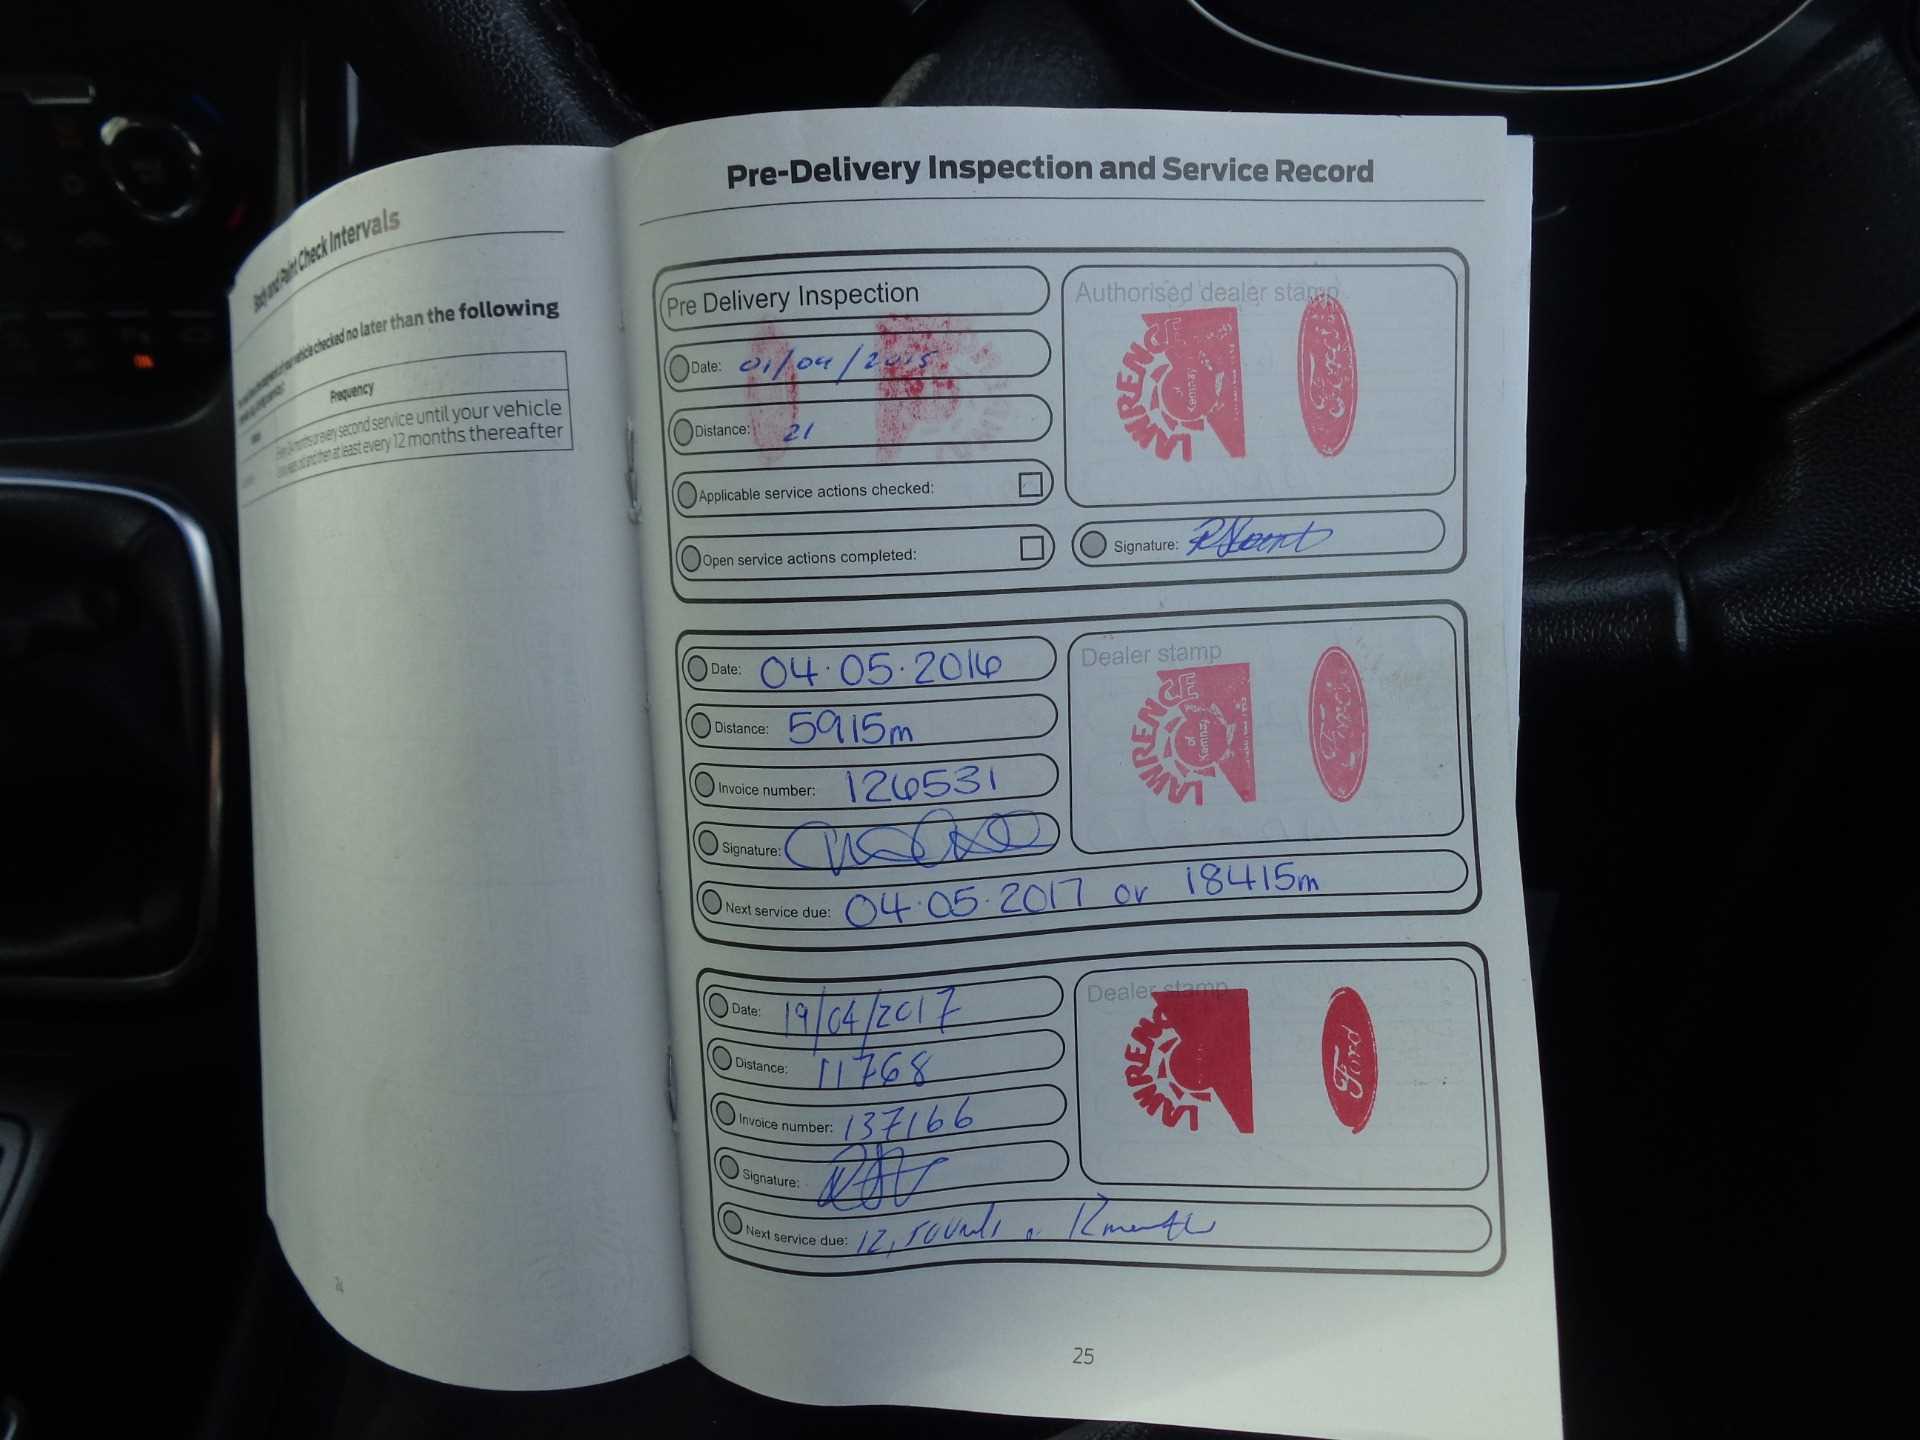 Body and Paint Check Intervals
vehicle checked no later than the following
Frequency
every second service until your vehicle
and then at least every 12 months thereafter
24
Pre-Delivery Inspection and Service Record
Pre Delivery Inspection
Date: 01/04/2015
Distance: 21
Applicable service actions checked:
Open service actions completed:
Authorised dealer stamp
LAWRENCE
of Kemnay
Ford
Signature:
Date: 04.05.2016
Distance: 5915m
Invoice number: 126531
Signature:
Next service due: 04.05.2017 or 18415m
Dealer stamp
LAWRENCE
of Kemnay
Ford
Date: 19/04/2017
Distance: 11768
Invoice number: 137166
Signature:
Next service due: 12,500mls 12 months
Dealer stamp
LAWREN
Ford
25